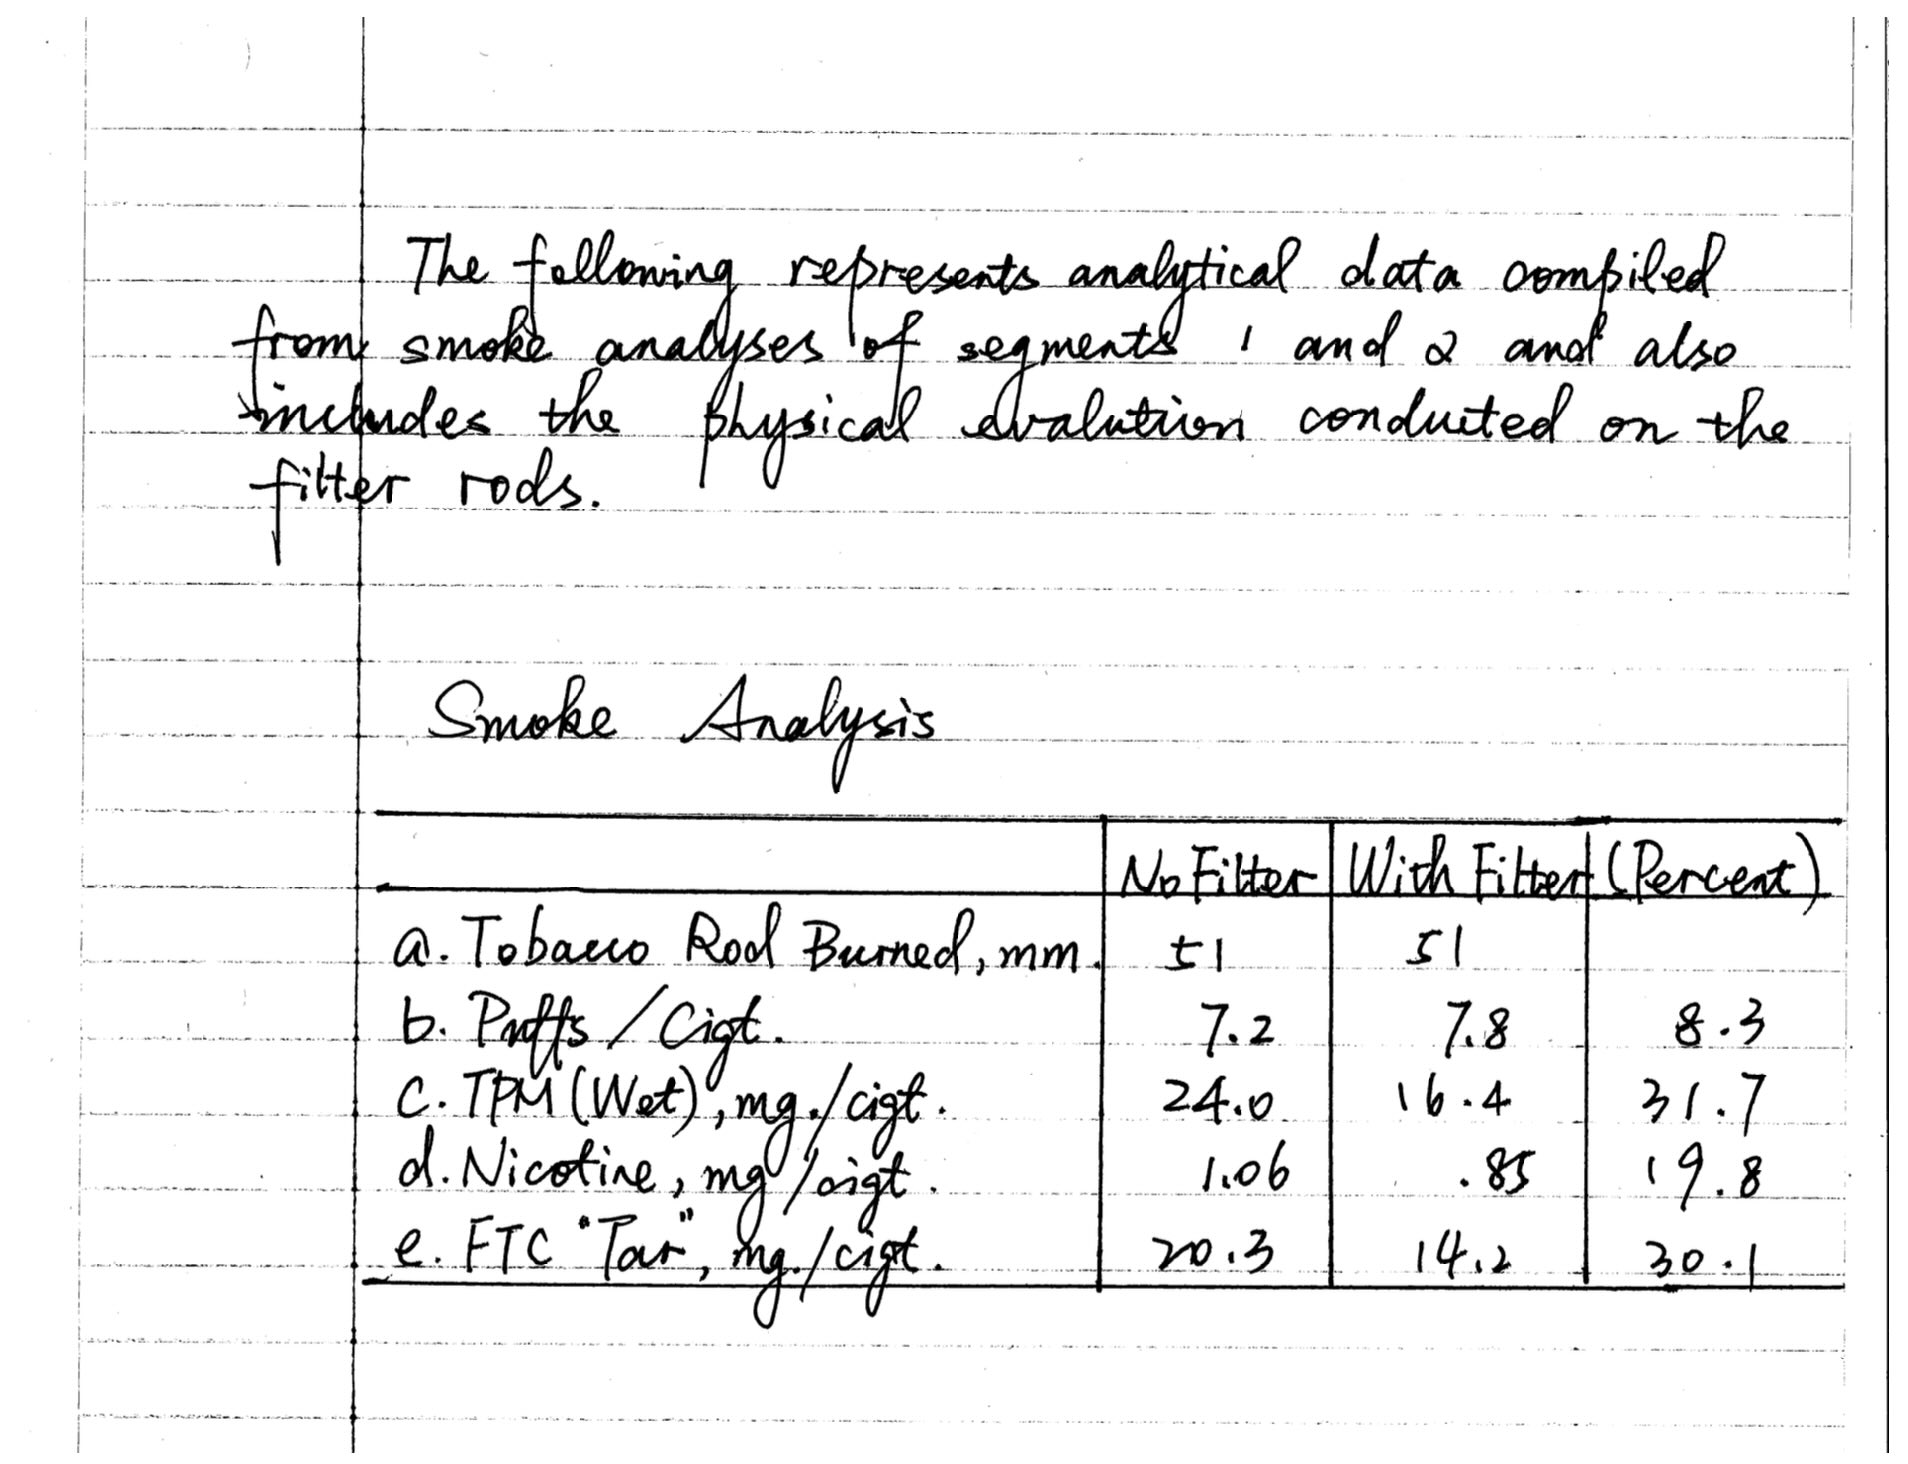 The following represents analytical data compiled
from smoke analyses of segments 1 and 2 and also
includes the physical evalution conducted on the
filter rods.
Smoke Analysis
No Filter With Filter (Percent)
a. Tobacco Rod Burned, mm. 51 51
b. Puffs / Cigt. 7.2 7.8 8.3
c. TPM (Wet), mg./cigt. 24.0 16.4 31.7
d. Nicotine, mg /cigt. 1.06 .85 19.8
e. FTC "Tar", mg./cigt. 20.3 14.2 30.1